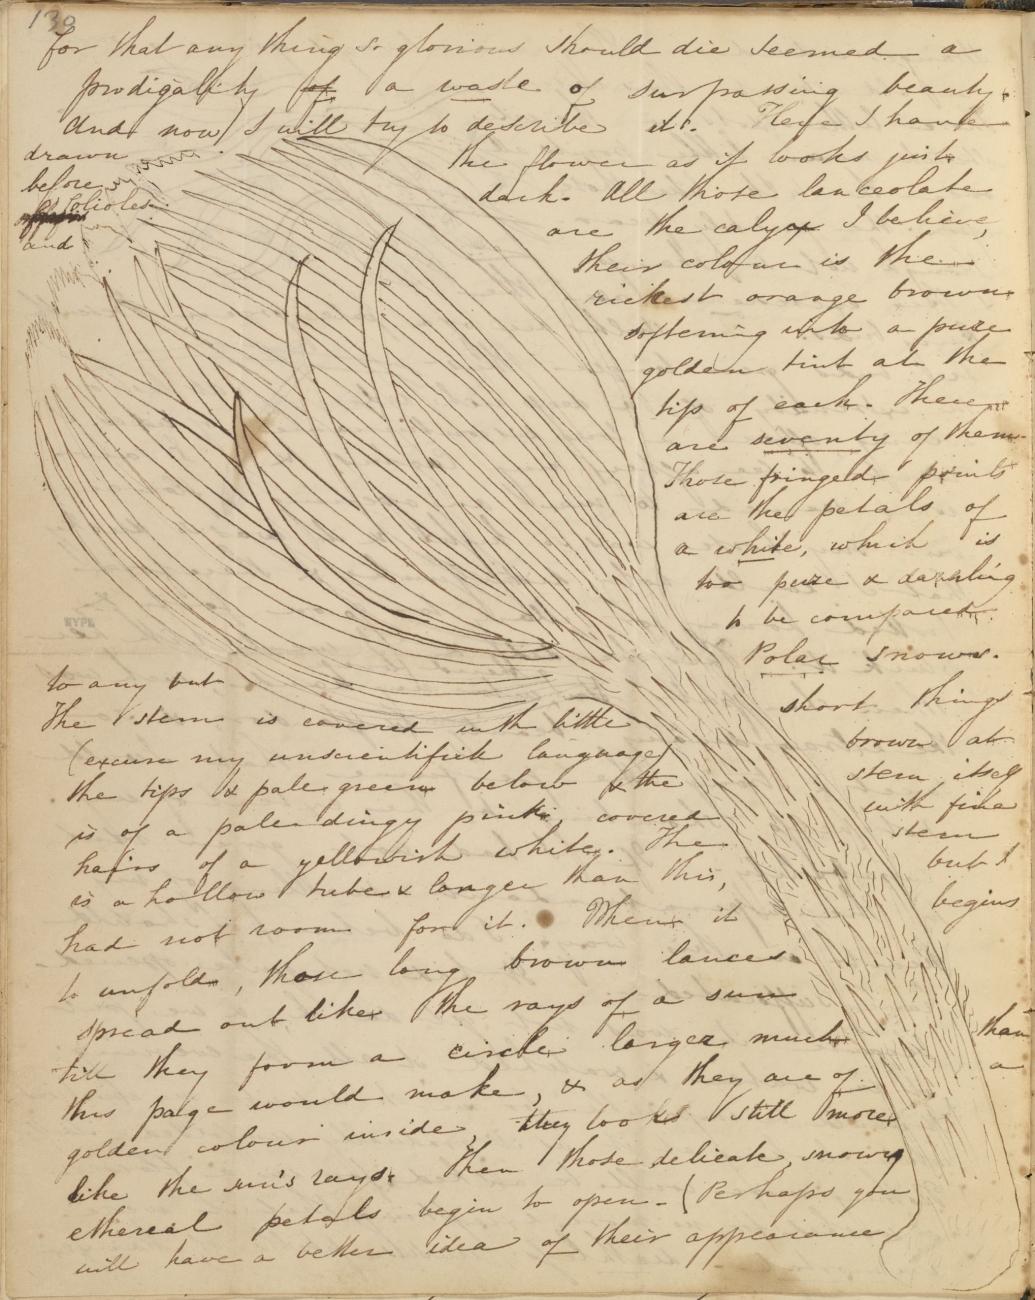 139
for that any thing so glorious should die seemed a
prodigality of a waste of surpassing beauty.
And now I will try to describe it. Here I have
drawn the flower as it looks just
before dark. All those lanceolate
folioles are the calyx I believe,
and their colour is the
richest orange brown
softening into a pure
golden tint at the
tip of each. There
are seventy of them
Those fringed points
are the petals of
a white, which is
too pure & dazzling
to be compared
to any but Polar snows.
The stem is covered with little short things
(excuse my unscientifick language) brown at
the tips & pale green below & the stem itself
is of a pale dingy pink, covered with fine
hairs of a yellowish white. The stem
is a hollow tube & longer than this, but I
had not room for it. When it begins
to unfold, those long brown lances
spread out like the rays of a sun
till they form a circle larger much than
this page would make, & as they are of a
golden colour inside, they look still more
like the sun's rays. Then those delicate, snowy
ethereal petals begin to open. (Perhaps you
will have a better idea of their appearance